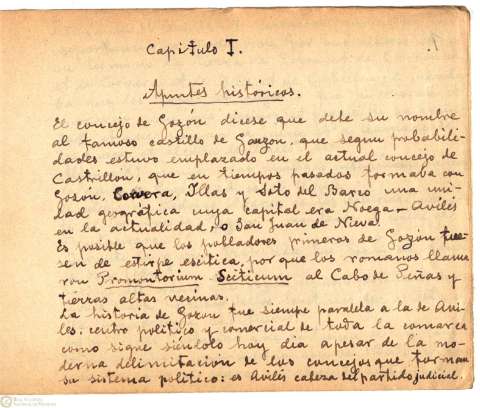 1.
Capitulo I.
Apuntes históricos.
El concejo de Gozón dicese que debe su nombre
al famoso castillo de Gauzon, que segun probabili-
dades estuvo emplazado en el actual concejo de
Castrillon, que en tiempos pasados formaba con
Gozón, Corvera, Illas y Soto del Barco una uni-
dad geográfica cuya capital era Noega - Avilés
en la actualidad, o San Juan de Nieva.
Es posible que los pobladores primeros de Gozon fue-
sen de estirpe escitica, por que los romanos llama-
ron Promontorium Sciticum al Cabo de Peñas y
tierras altas vecinas.
La historia de Gozon fue siempre paralela a la de Avi-
lés; centro politico y comercial de toda la comarca
como sigue siéndolo hoy dia apesar de la mo-
derna delimitacion de los concejos que forman
su sistema politico: es Avilés cabeza del partido judicial.